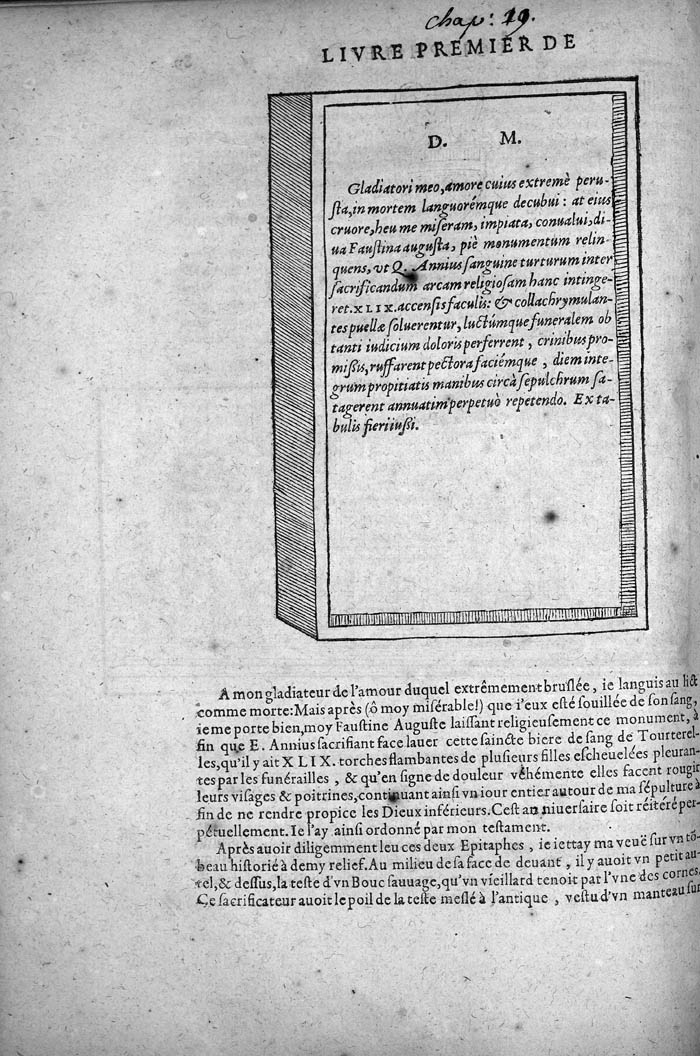 chap: 19.
LIVRE PREMIER DE
D. M.
Gladiatori meo, amore cuius extremè peru-
sta, in mortem languorémque decubui : at eius
cruore, heu me miseram, impiata, conualui, di-
ua Faustina augusta, piè monumentum relin-
quens, vt Q. Annius sanguine turturum inter
sacrificandum arcam religiosam hanc intinge-
ret. XLIX. accensis faculis: & collachrymulan-
tes puellæ soluerentur, luctúmque funeralem ob
tanti iudicium doloris perferrent, crinibus pro-
missis, ruffarent pectora faciémque, diem inte-
grum propitiatis manibus circà sepulchrum sa-
tagerent annuatim perpetuò repetendo. Ex ta-
bulis fieri iussi.
A mon gladiateur de l'amour duquel extrêmement bruslée, ie languis au lict
comme morte: Mais après (ô moy misérable!) que i'eux esté souillée de son sang,
ie me porte bien, moy Faustine Auguste laissant religieusement ce monument, à
fin que E. Annius sacrifiant face lauer cette saincte biere de sang de Tourterel-
les, qu'il y ait XLIX. torches flambantes de plusieurs filles escheuelées pleuran-
tes par les funérailles, & qu'en signe de douleur véhémente elles facent rougir
leurs visages & poitrines, continuant ainsi vn iour entier autour de ma sépulture à
fin de ne rendre propice les Dieux inférieurs. Cest an niuersaire soit réiteré per-
pétuellement. Ie l'ay ainsi ordonné par mon testament.
Après auoir diligemment leu ces deux Epitaphes, ie iettay ma veuë sur vn tō-
beau historié à demy relief. Au milieu de sa face de deuant, il y auoit vn petit au-
tel, & dessus, la teste d'vn Bouc sauuage, qu'vn vieillard tenoit par l'vne des cornes.
Ce sacrificateur auoit le poil de la teste meslé à l'antique, vestu d'vn manteau sur